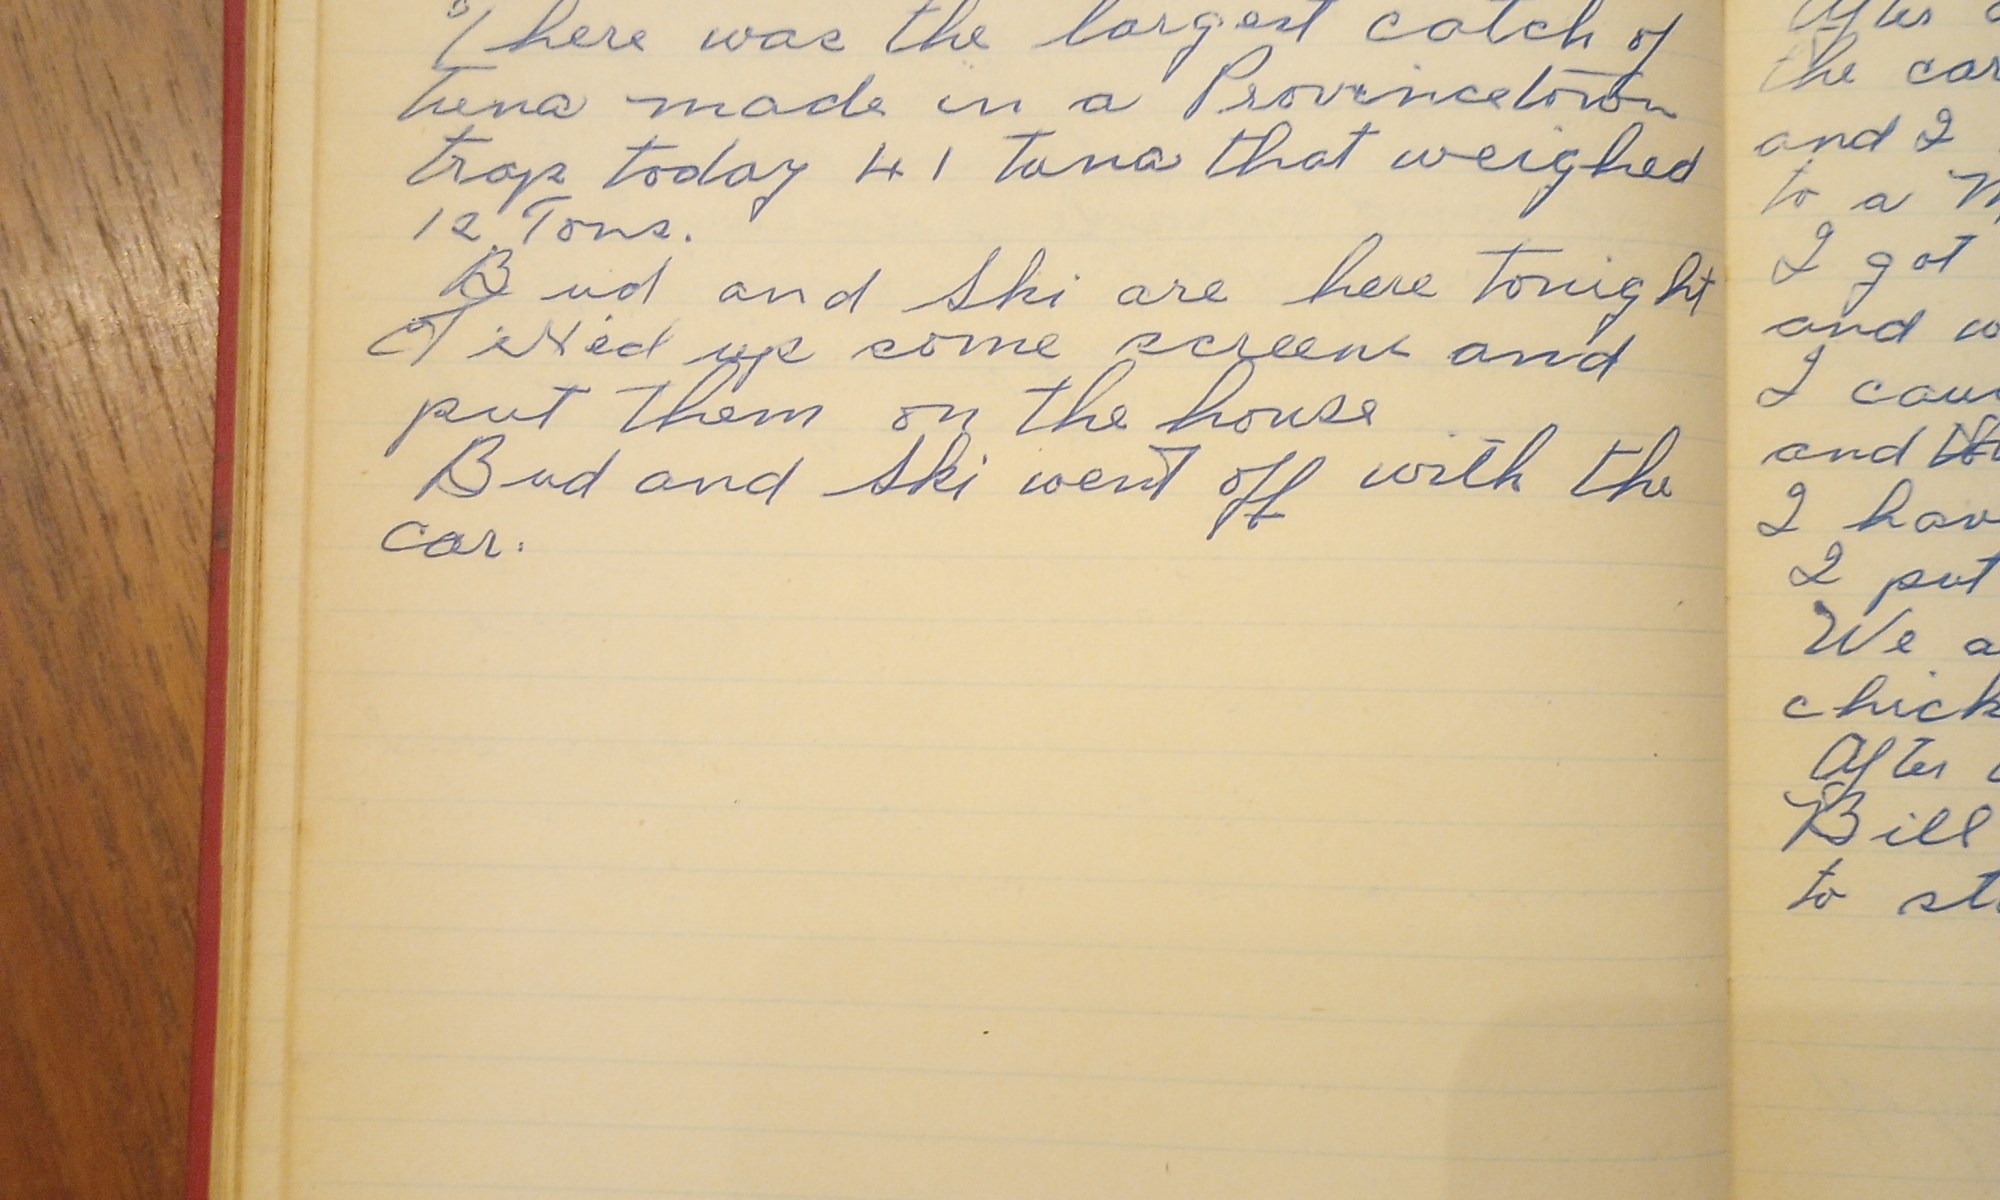 There was the largest catch of
tuna made in a Provincetown
trap today 41 tuna that weighed
12 Tons.
Bud and Ski are here tonight
I fixed up some screens and
put them on the house
Bud and Ski went off with the
car.
After
the car
and I
to a
I got
and
I
and
I hav
I put
We a
chick
After
Bill
to st